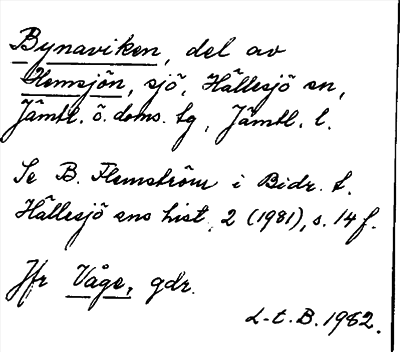 Bynaviken, del av
Hemsjön, sjö, Hällesjö sn,
Jämtl. ö. doms. tg, Jämtl. l.
Se B. Flemström i Bidr. t.
Hällesjö sns hist, 2 (1981), s. 14 f.
Jfr Våge, gdr.
L-t. B. 1982.